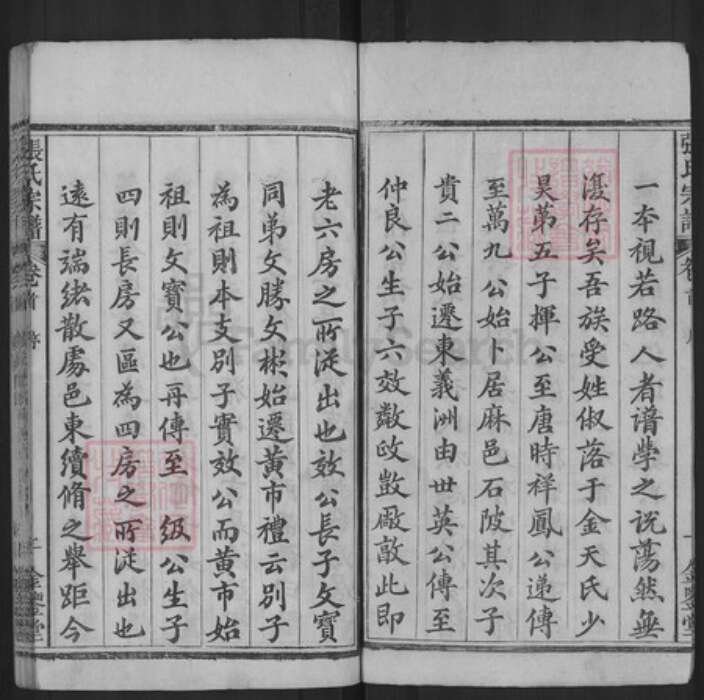 一夲視若路人者谱學之说蕩然無
復存矣吾族受姓俶落于金天氏少
昊苐五子揮公至唐時祥鳳公递傳
至萬九公始卜居麻邑石陂其次子
貴二公始遷東義洲由世英公傳至
仲良公生子六效敿政敳廠敵此即
老六房之所從出也效公長子文寶
同弟文勝文彬始遷黄市禮云别子
為祖則本支别子實效公而黄市始
祖則文寶公也再傳至 级公生子
四則長房又區為四房之所從出也
遠有端緒散處邑東續脩之舉距今
張氏宗譜
卷首
序
金鑒堂
FamilySearch